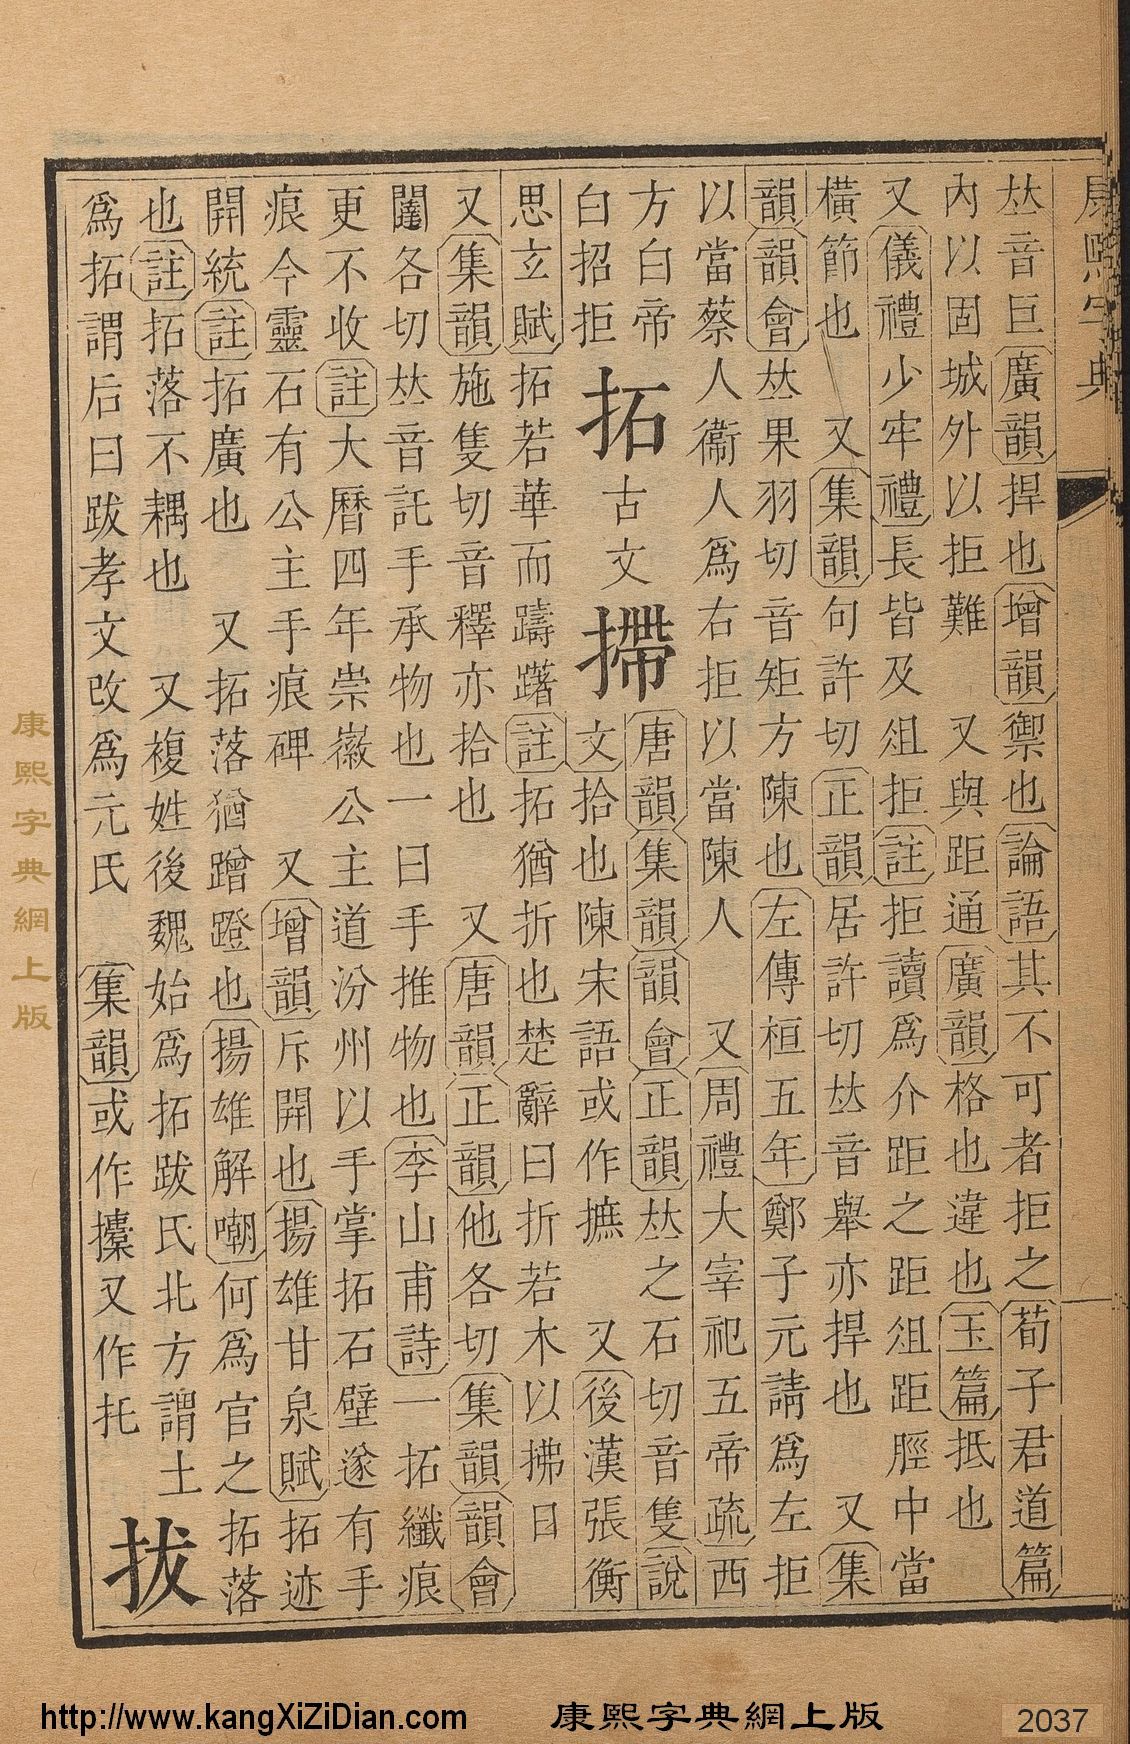 康熙字典
𠀤音巨廣韻捍也增韻禦也論語其不可者拒之荀子君道篇
內以固城外以拒難　又與距通廣韻格也違也玉篇抵也
又儀禮少牢禮長皆及俎拒註拒讀爲介距之距俎距脛中當
橫節也　又集韻句許切正韻居許切𠀤音舉亦捍也　又集
韻韻會𠀤果羽切音矩方陳也左傳桓五年鄭子元請爲左拒
以當蔡人衞人爲右拒以當陳人　又周禮大宰祀五帝疏西
方白帝
白招拒
拓
古文
㨢
唐韻集韻韻會正韻𠀤之石切音隻說
文拾也陳宋語或作摭　又後漢張衡
思玄賦拓若華而躊躇註拓猶折也楚辭曰折若木以拂日
又集韻施隻切音釋亦拾也　又唐韻正韻他各切集韻韻會
闥各切𠀤音託手承物也一曰手推物也李山甫詩一拓纖痕
更不收註大曆四年崇徽公主道汾州以手掌拓石壁遂有手
痕今靈石有公主手痕碑　又增韻斥開也揚雄甘泉賦拓迹
開統註拓廣也　又拓落猶蹭蹬也揚雄解嘲何爲官之拓落
也註拓落不耦也　又複姓後魏始爲拓跋氏北方謂土
爲拓謂后曰跋孝文改爲元氏　集韻或作㩷又作托
拔
康熙字典網上版
http://www.kangXiZiDian.com
康熙字典網上版
2037